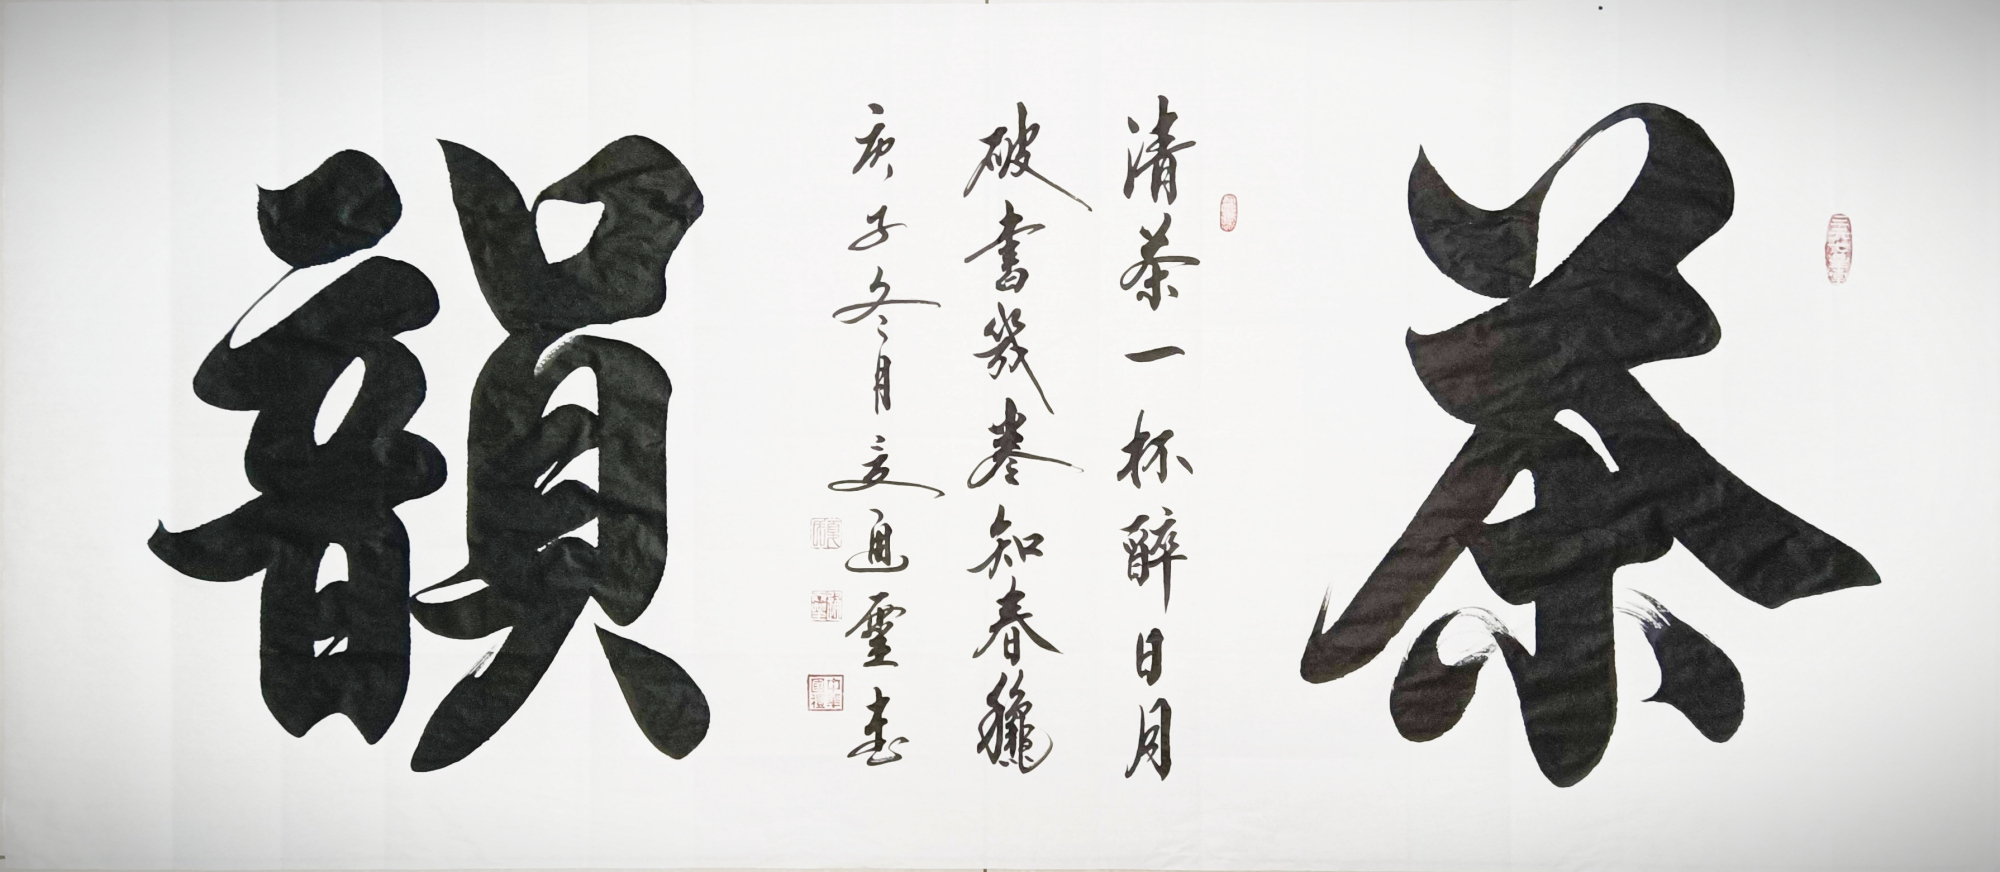 茶
清茶一杯醉日月
破書幾卷知春穐
庚子冬月文通靈書
韻